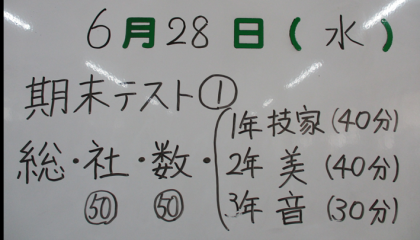 6月28日(水)
期末テスト①
総・社・数・
㊿ ㊿
1年技家(40分)
2年 美 (40分)
3年 音 (30分)